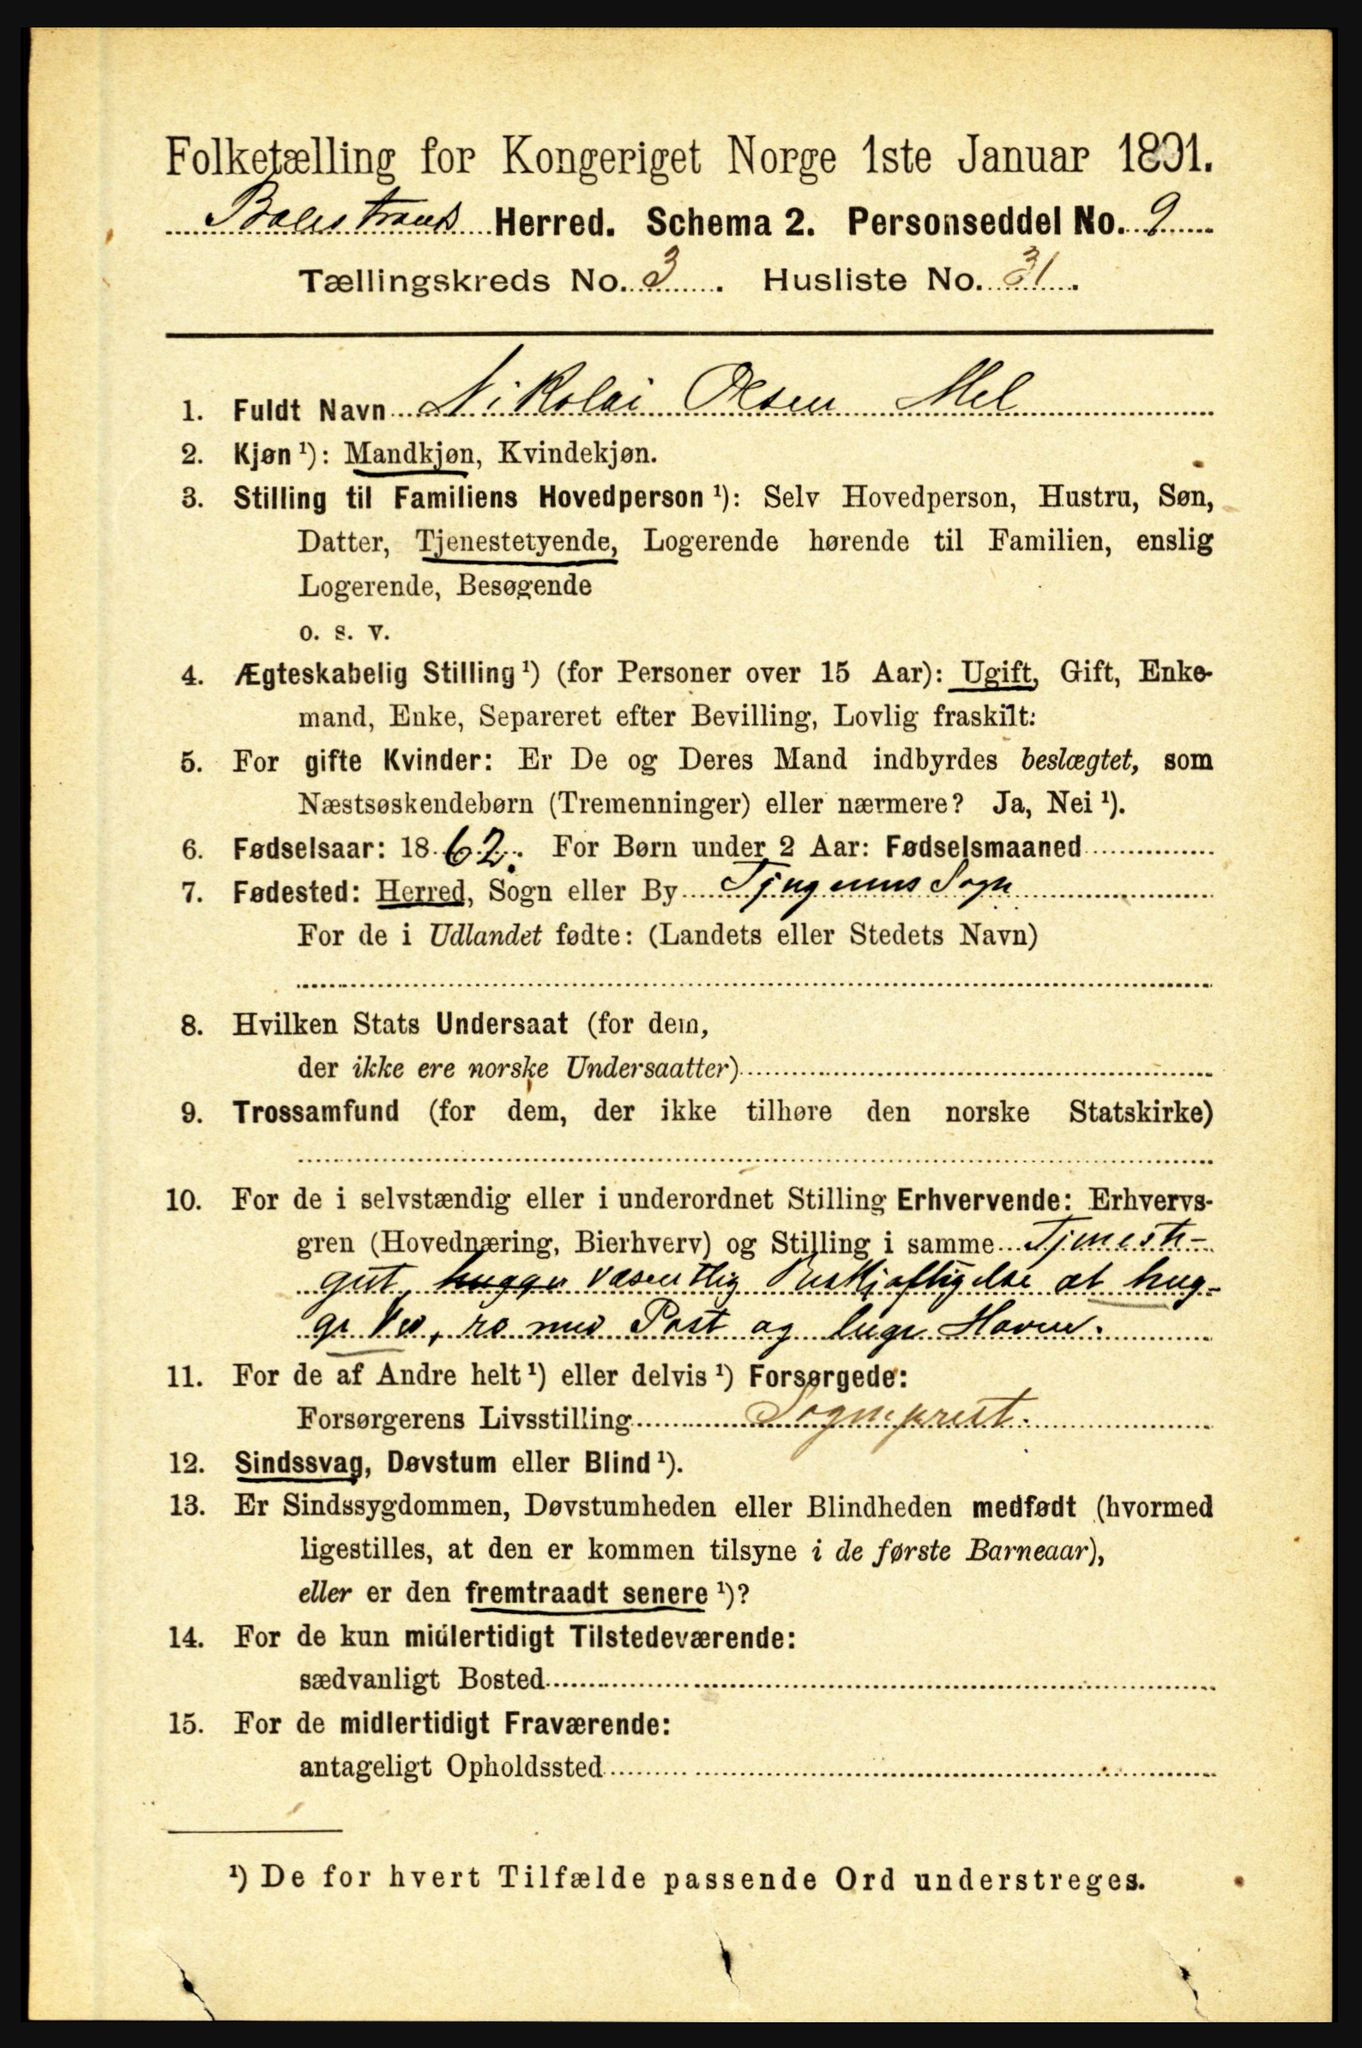 Folketælling for Kongeriget Norge 1ste Januar 1891.
Balestrand Herred. Schema 2. Personseddel No. 9
Tællingskreds No. 3. Husliste No. 31.
1. Fuldt Navn Nikolai Olsen Mel
2. Kjøn¹): Mandkjøn, Kvindekjøn.
3. Stilling til Familiens Hovedperson¹): Selv Hovedperson, Hustru, Søn,
Datter, Tjenestetyende, Logerende hørende til Familien, enslig
Logerende, Besøgende
o. s. v.
4. Ægteskabelig Stilling¹) (for Personer over 15 Aar): Ugift, Gift, Enke-
mand, Enke, Separeret efter Bevilling, Lovlig fraskilt:
5. For gifte Kvinder: Er De og Deres Mand indbyrdes beslægtet, som
Næstsøskendebørn (Tremenninger) eller nærmere? Ja, Nei¹).
6. Fødselsaar: 1862. For Børn under 2 Aar: Fødselsmaaned
7. Fødested: Herred, Sogn eller By Tjugums Sogn
For de i Udlandet fødte: (Landets eller Stedets Navn)
8. Hvilken Stats Undersaat (for dem,
der ikke ere norske Undersaatter)
9. Trossamfund (for dem, der ikke tilhøre den norske Statskirke)
10. For de i selvstændig eller i underordnet Stilling Erhvervende: Erhvervs-
gren (Hovednæring, Bierhverv) og Stilling i samme Tjenest-
gut, hugge væsentlig Beskjæftigelse at hug-
ge Ved, ro med Post og luge Haven.
11. For de af Andre helt¹) eller delvis¹) Forsørgede:
Forsørgerens Livsstilling Sogneprest.
12. Sindssvag, Døvstum eller Blind¹).
13. Er Sindssygdommen, Døvstumheden eller Blindheden medfødt (hvormed
ligestilles, at den er kommen tilsyne i de første Barneaar),
eller er den fremtraadt senere¹)?
14. For de kun midlertidigt Tilstedeværende:
sædvanligt Bosted
15. For de midlertidigt Fraværende:
antageligt Opholdssted
¹) De for hvert Tilfælde passende Ord understreges.